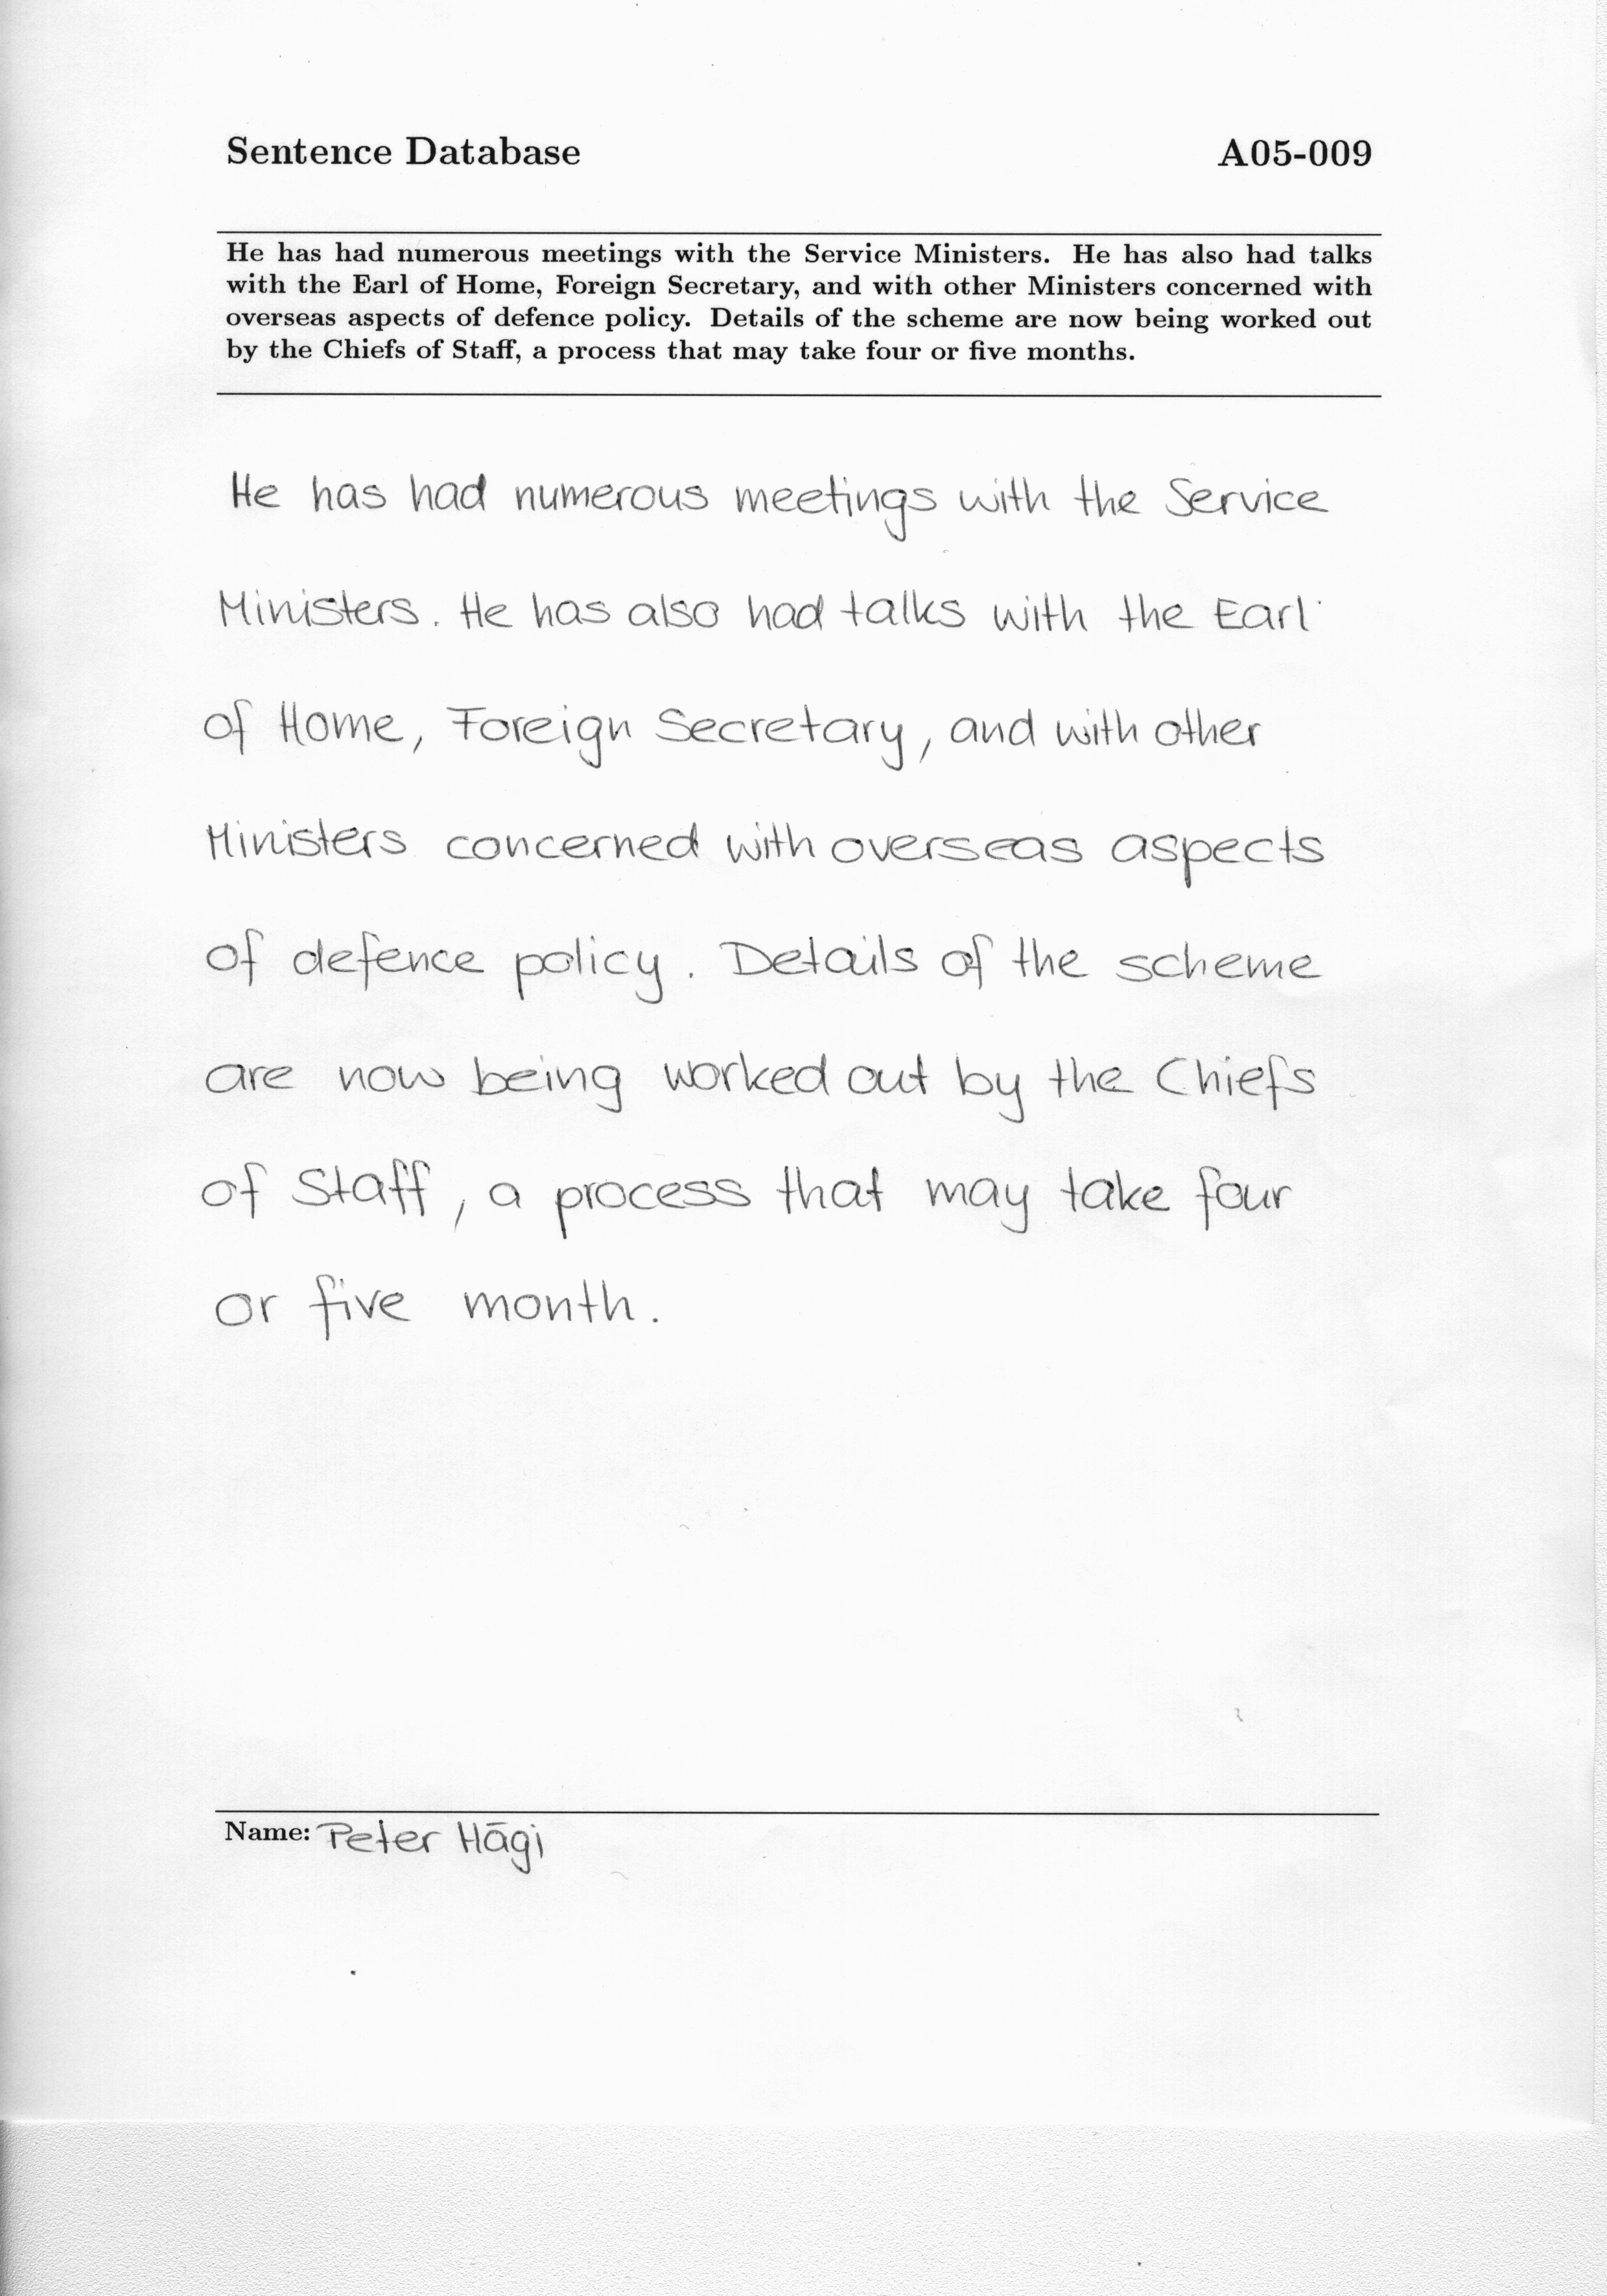 Sentence Database A05-009
He has had numerous meetings with the Service Ministers. He has also had talks
with the Earl of Home, Foreign Secretary, and with other Ministers concerned with
overseas aspects of defence policy. Details of the scheme are now being worked out
by the Chiefs of Staff, a process that may take four or five months.
He has had numerous meetings with the Service
Ministers. He has also had talks with the Earl
of Home, Foreign Secretary, and with other
Ministers concerned with overseas aspects
of defence policy. Details of the scheme
are now being worked out by the Chiefs
of Staff, a process that may take four
or five month.
Name: Peter Hägi